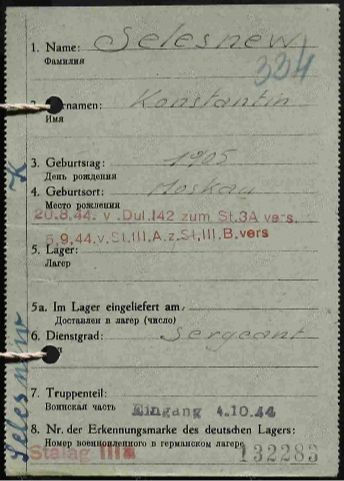 1. Name: Selesnew
Фамилия
334
2. Vornamen: Konstantin
Имя
3. Geburtstag: 1905
День рождения
4. Geburtsort: Moskau
Место рождения
20.8.44. v. Dul.142 zum St.3A vers.
5.9.44.v.St.III.A.z.St.III.B.vers
5. Lager:
Лагер
5a. Im Lager eingeliefert am:
Доставлен в лагер (число)
6. Dienstgrad: Sergeant
7. Truppenteil:
Воинская часть Eingang 4.10.44
8. Nr. der Erkennungsmarke des deutschen Lagers:
Номер военнопленного в германском лагере
Stalag IIIa 132283
Selesnew K